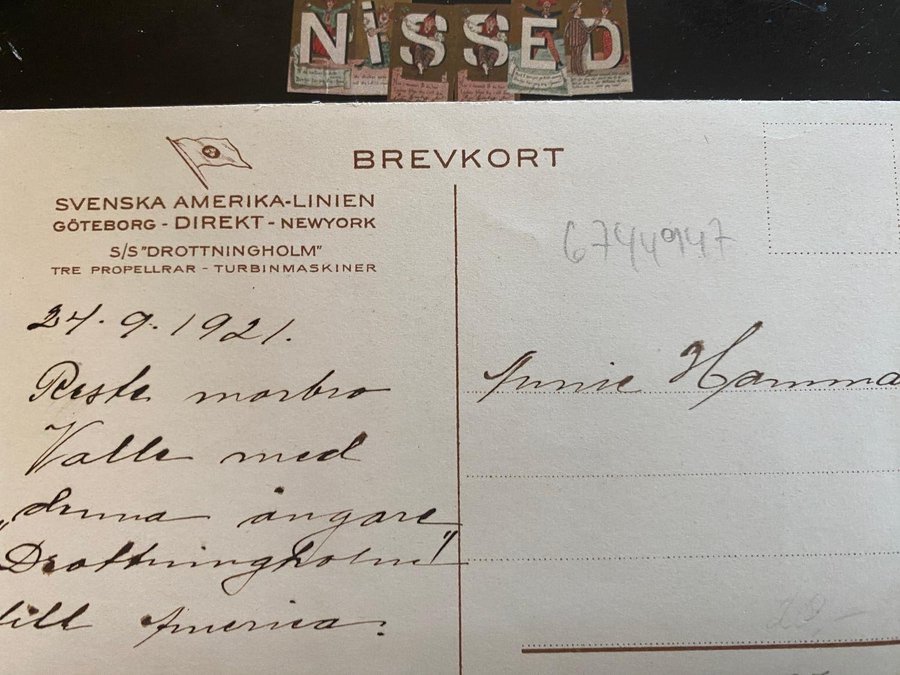 NiSSED
BREVKORT
SVENSKA AMERIKA-LINIEN
GÖTEBORG - DIREKT - NEWYORK
S/S "DROTTNINGHOLM"
TRE PROPELLRAR - TURBINMASKINER
67449147
24.9.1921.
Reste morbro
Valle med
„denna ångare
Drottningholm"
till America.
Annie Hamma